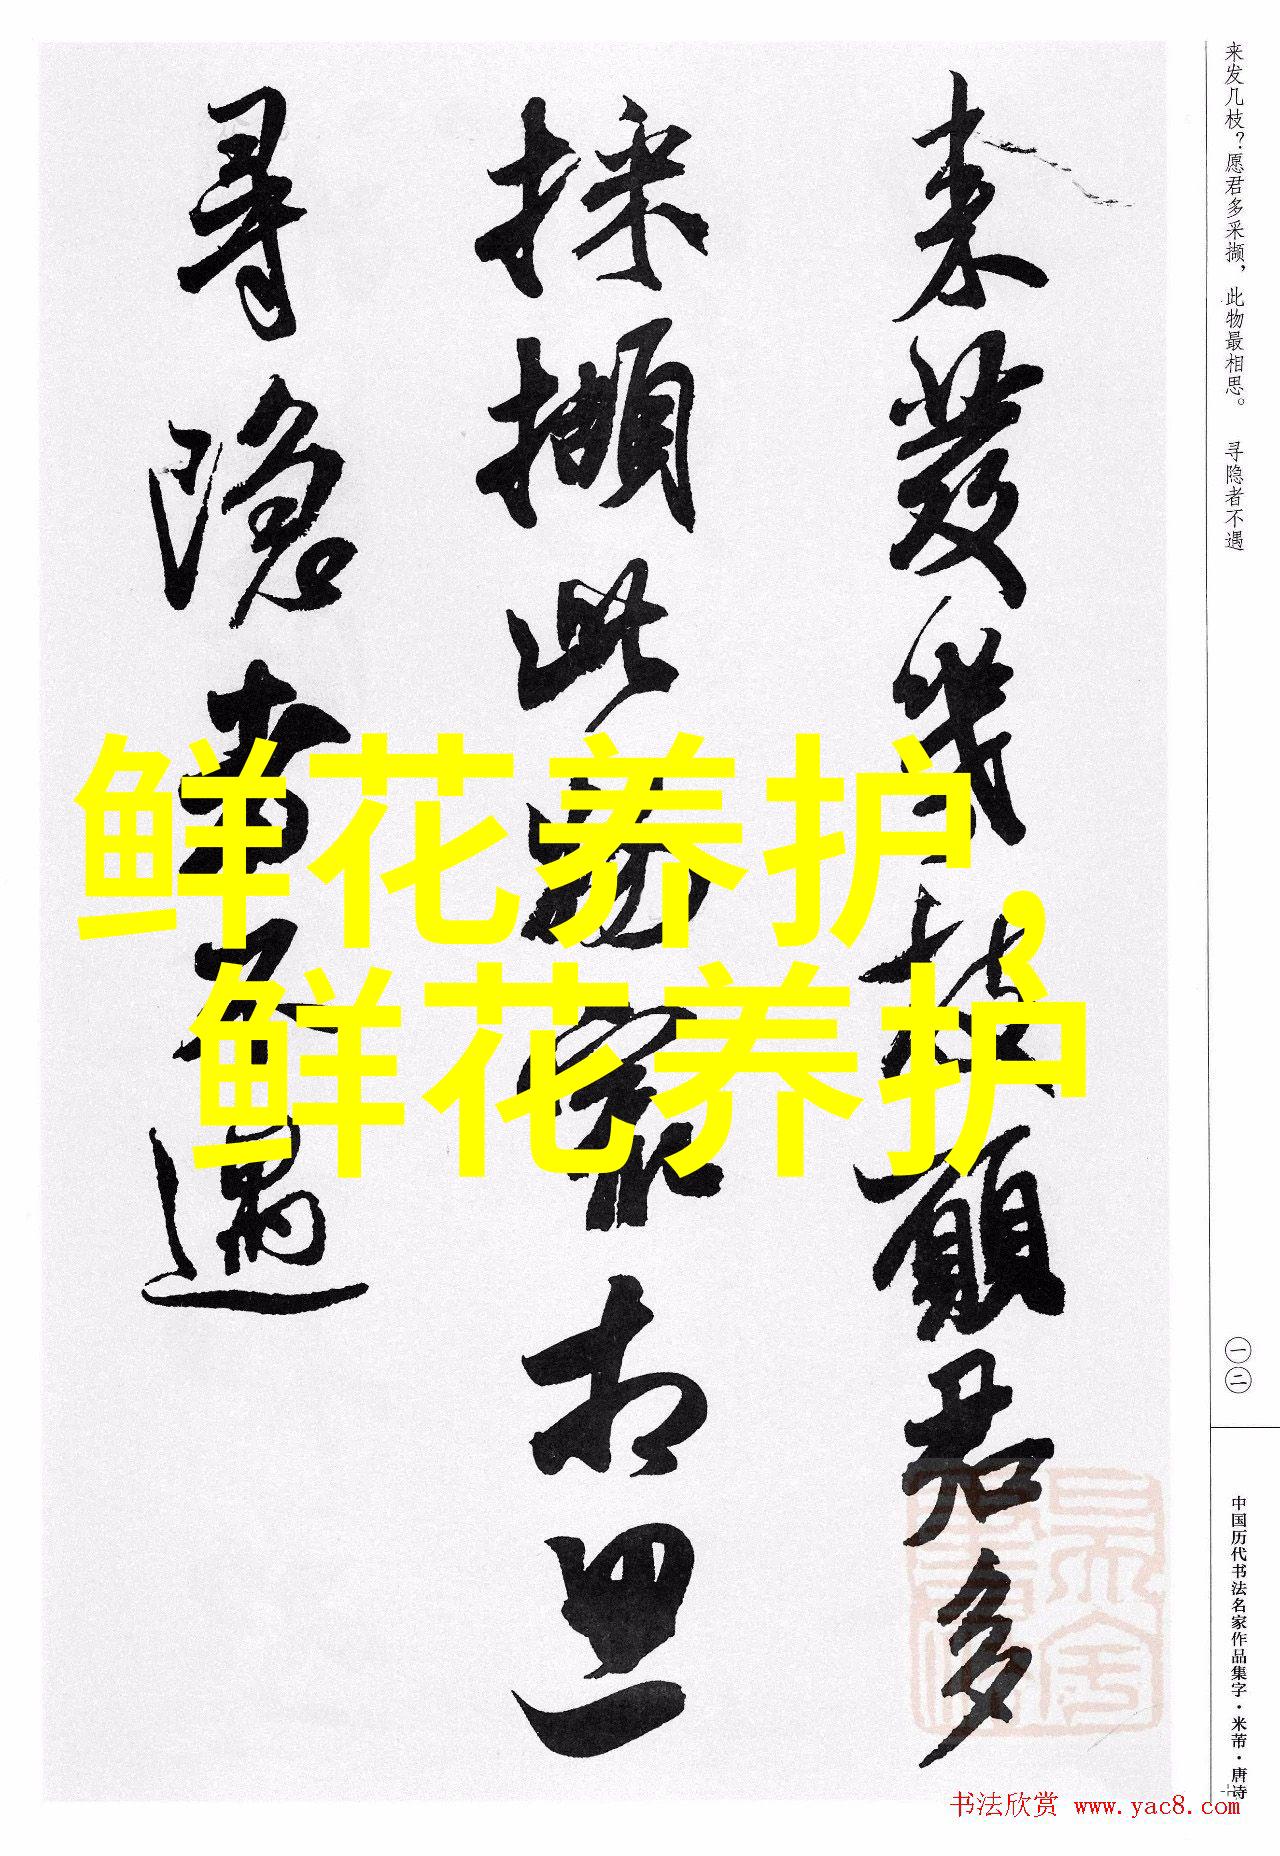 来发几枝？愿君多采撷，此物最相思。 寻隐者不遇
一二
中国历代书法名家作品集字·米芾·唐诗
来發幾枝願君多
採擷此物最相思
尋隱者不遇
鲜花养护，
鲜花养护
书法欣赏 www.yac8.com